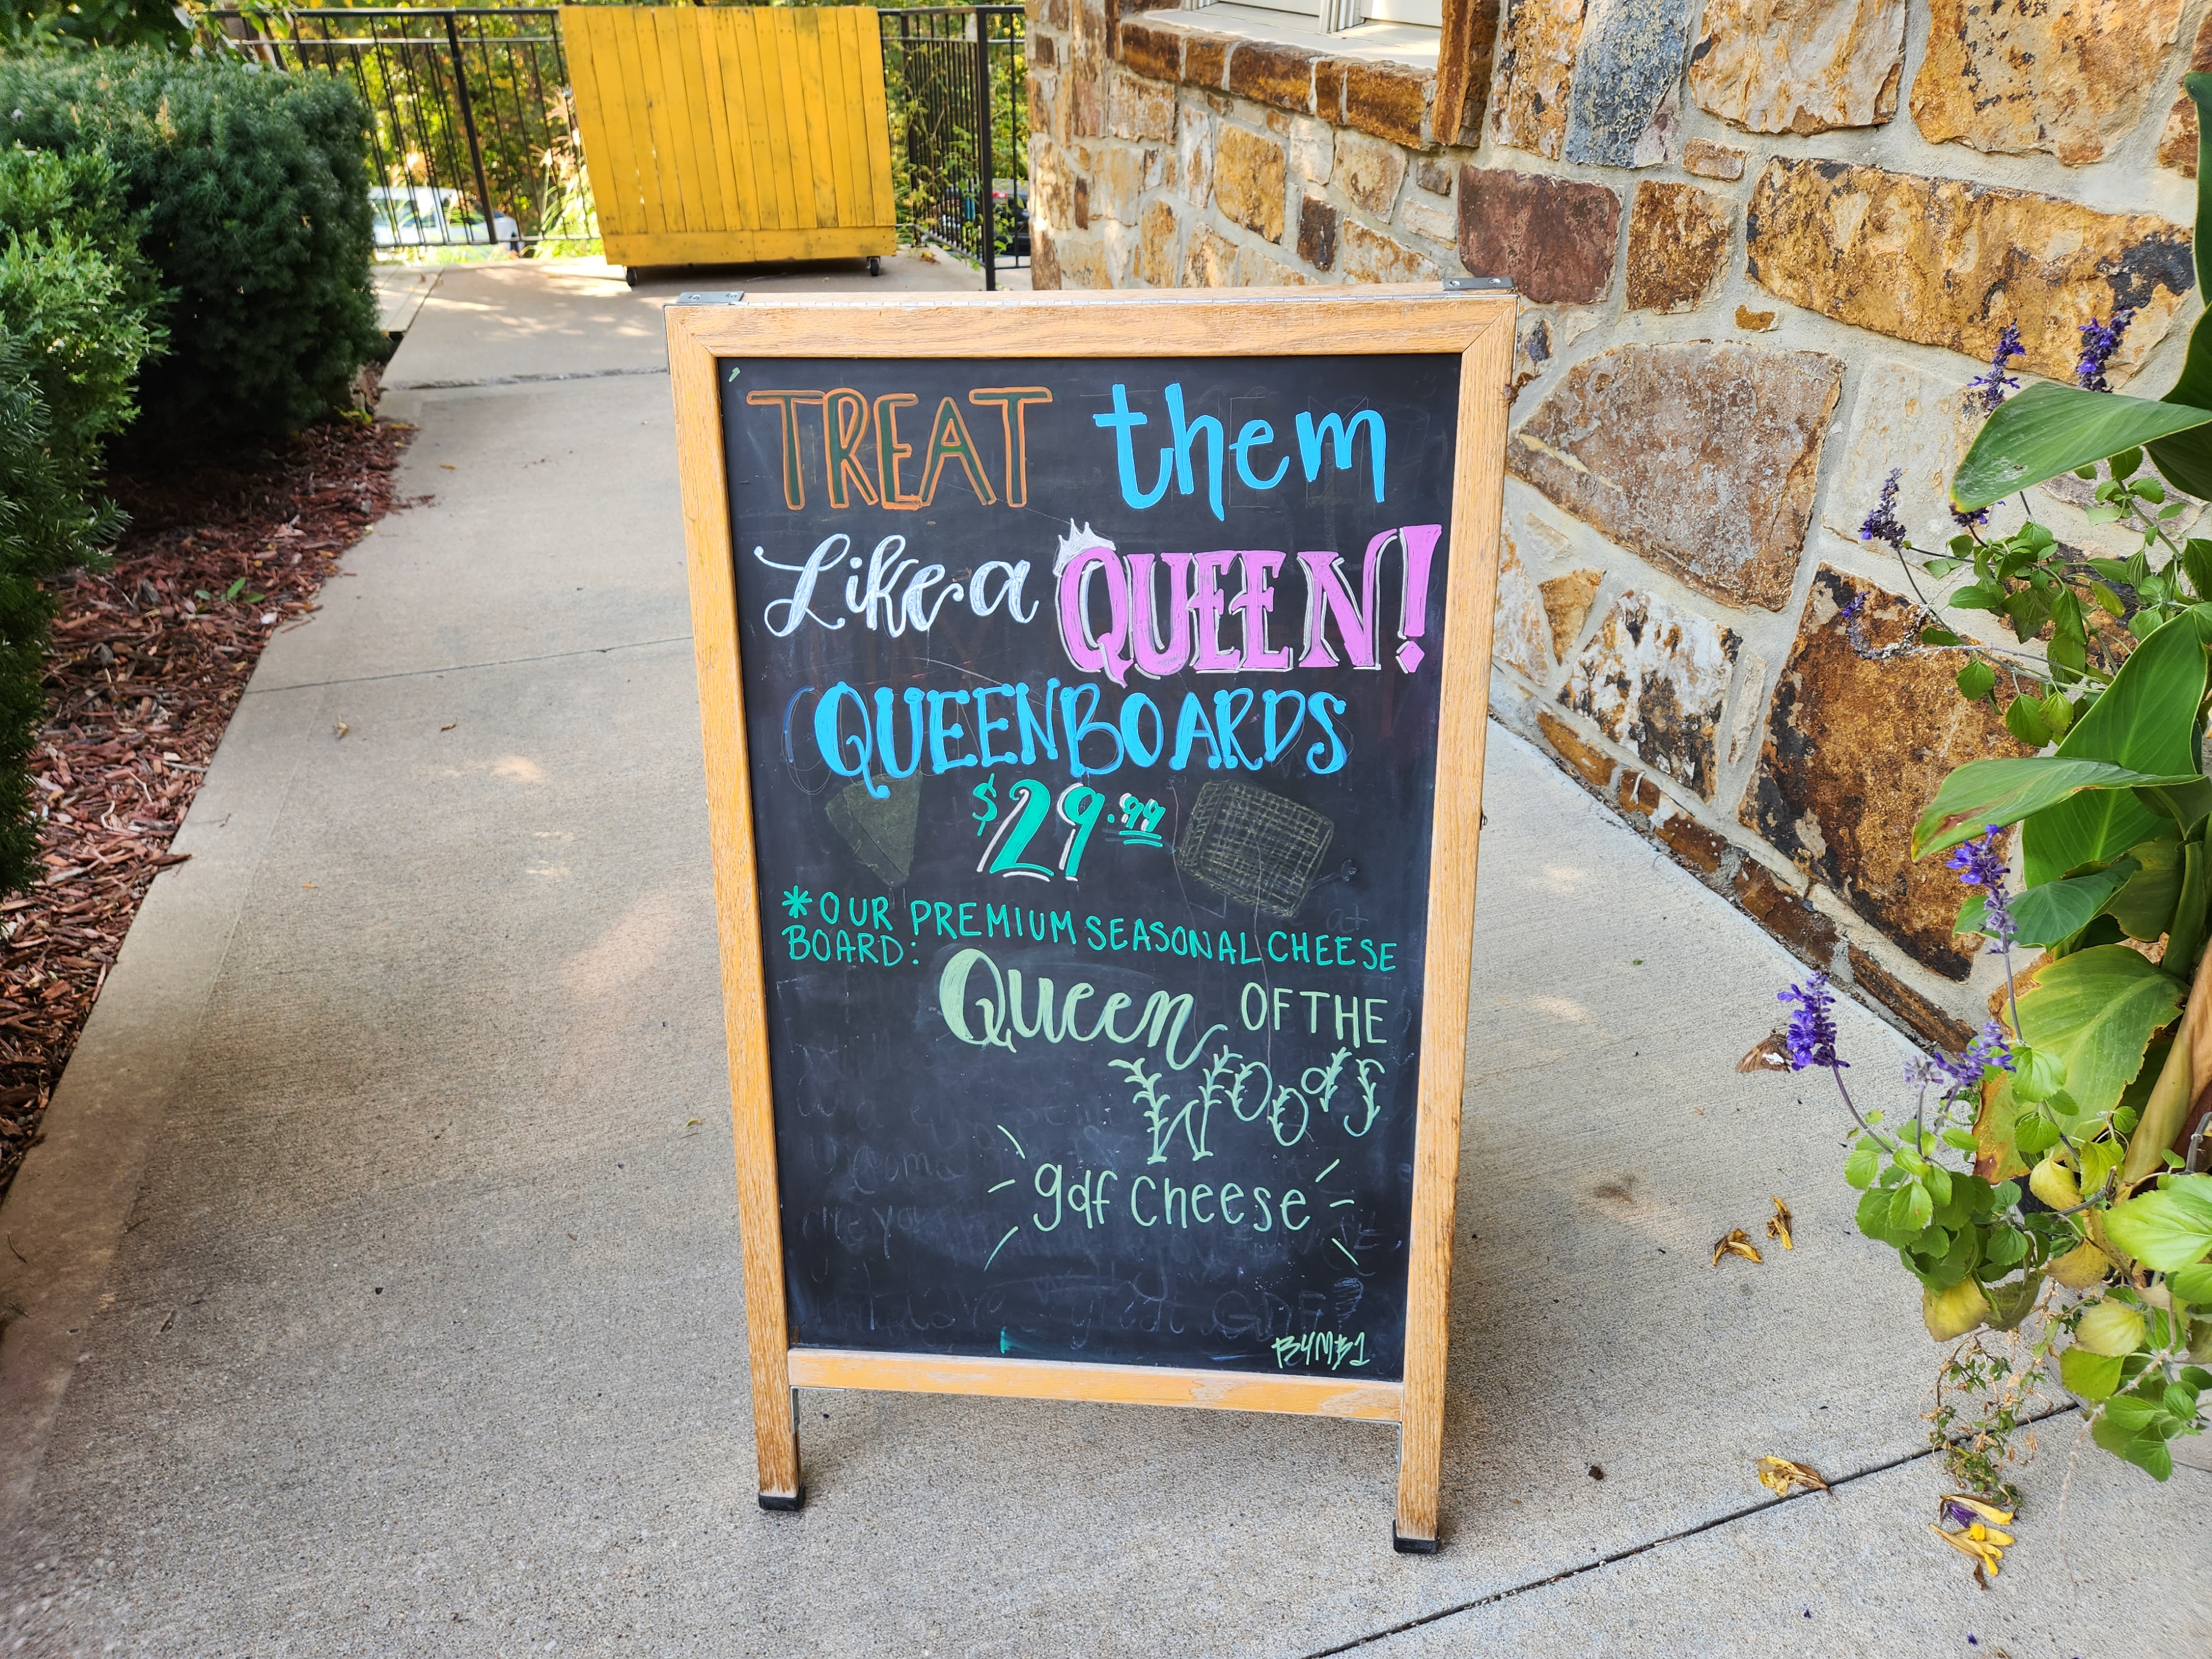 TREAT them
Like a QUEEN!
QUEENBOARDS
$29.99
*OUR PREMIUM SEASONAL CHEESE
BOARD:
Queen OF THE
Woods
gdf cheese